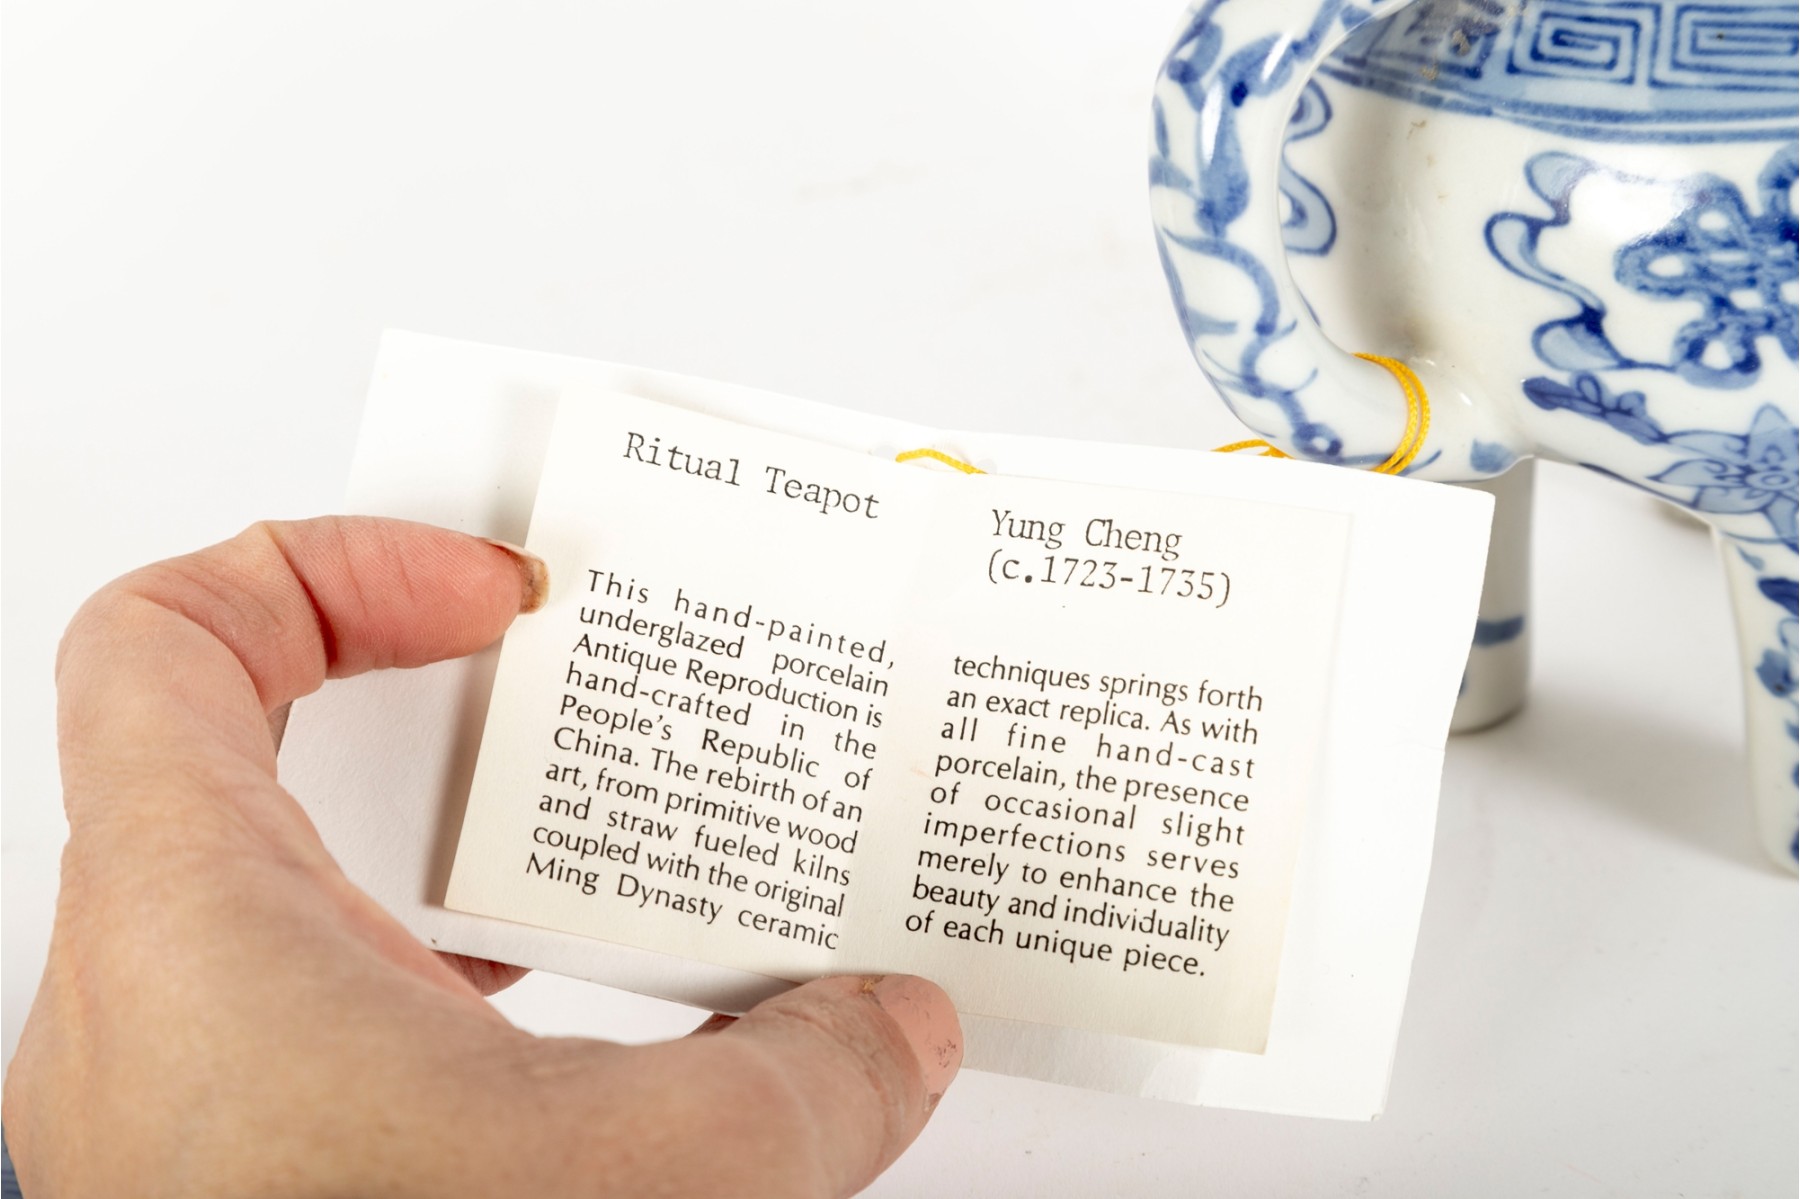 Ritual Teapot
This hand-painted,
underglazed porcelain
Antique Reproduction is
hand-crafted in the
People's Republic of
China. The rebirth of an
art, from primitive wood
and straw fueled kilns
coupled with the original
Ming Dynasty ceramic
Yung Cheng
(c.1723-1735)
techniques springs forth
an exact replica. As with
all fine hand-cast
porcelain, the presence
of occasional slight
imperfections serves
merely to enhance the
beauty and individuality
of each unique piece.